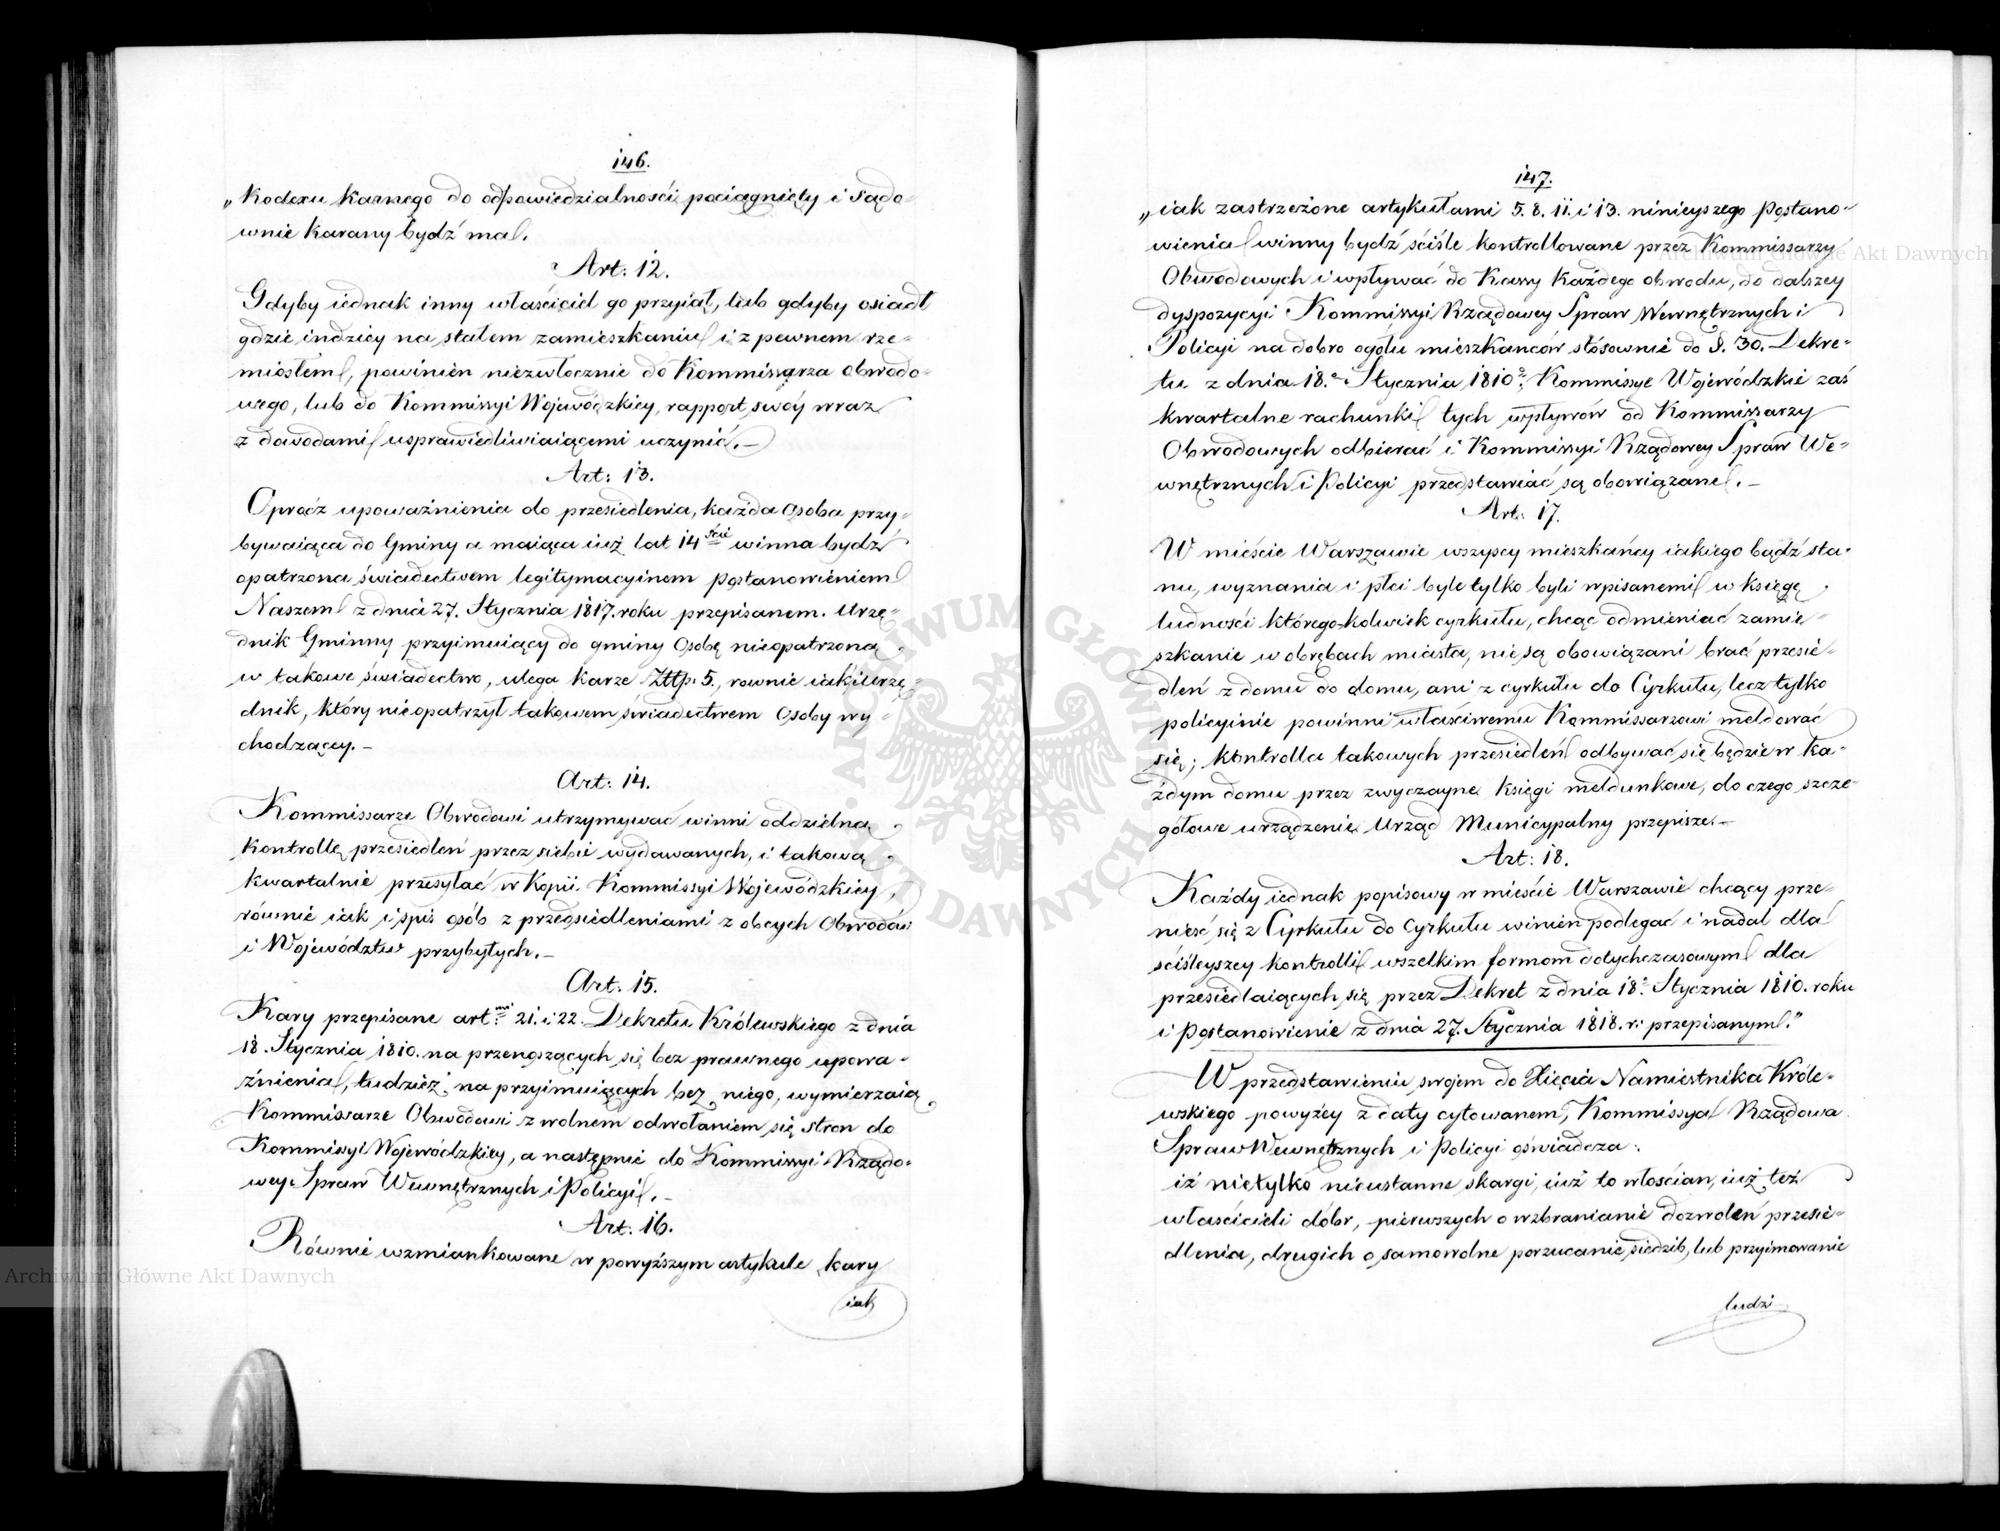 146.
„Kodexu Karnego do odpowiedzialności pociągnięty i sądo-
wnie karany bydź ma.
Art: 12.
Gdyby iednak inny właściciel go przyiął, lub gdyby osiadł
gdzie indziey na stałem zamieszkaniu i z pewnem rze-
miosłem, powinien niezwłocznie do Kommissarza obwodo-
wego, lub do Kommissyi Wojewódzkiey, rapport swóy wraz
z dowodami usprawiedliwiaiącemi uczynić. –
Art: 13.
Oprócz upoważnienia do przesiedlenia, każda osoba przy-
bywaiąca do Gminy a maiąca iuż lat 14ście winna bydź
opatrzona świadectwem legitymacyinem postanowieniem
Naszem z dnia 27. Stycznia 1817. roku przepisanem. Urzę-
dnik Gminny przyimuiący do gminy osobę nieopatrzoną
w takowe świadectwo, ulega karze Złtp. 5., rownie iak i Urzę-
dnik, który nieopatrzył takowem świadectwem osoby wy-
chodzącey. –
Art: 14.
Kommissarze Obwodowi utrzymywać winni oddzielną
kontrollę przesiedleń przez siebie wydawanych, i takową
kwartalnie przesyłać w Kopii Kommissyi Wojewódzkiey,
równie iak i spis osób z przesiedleniami z obcych Obwodów
i Województw przybyłych. –
Art: 15.
Kary przepisane art.mi 21. i 22. Dekretu Królewskiego z dnia
18. Stycznia 1810. na przenoszących się bez prawnego upowa-
żnienia, tudzież na przyimuiących bez niego, wymierzaią
Kommissarze Obwodowi z wolnem odwołaniem się stron do
Kommissyi Wojewódzkiey, a następnie do Kommissyi Rządo-
wey Spraw Wewnętrznych i Policyi. –
Art: 16.
Równie wzmiankowane w powyższym artykule kary
iak
147.
„iak zastrzeżone artykułami 5. 8. 11. i 13. ninieyszego Postano-
wienia winny bydź ściśle kontrollowane przez Kommissarzy
Obwodowych i wpływać do Kassy każdego obwodu, do dalszey
dyspozycyi Kommissyi Rządowey Spraw Wewnętrznych i
Policyi na dobro ogółu mieszkańców stósownie do §. 30. Dekre-
tu z dnia 18. Stycznia 1810. Kommissye Wojewódzkie zaś
kwartalne rachunki tych wpływów od Kommissarzy
Obwodowych odbierać i Kommissyi Rządowey Spraw We-
wnętrznych i Policyi przedstawiać są obowiązane. –
Art: 17.
W mieście Warszawie wszyscy mieszkańcy iakiego bądź sta-
nu, wyznania i płci byle tylko byli wpisanemi w księgę
ludności którego-kolwiek cyrkułu, chcąc odmieniać zamie-
szkanie w obrębach miasta, nie są obowiązani brać przesie-
dleń z domu do domu, ani z cyrkułu do Cyrkułu, lecz tylko
policyinie powinni właściwemu Kommissarzowi meldować
się; kontrolla takowych przesiedleń odbywać się będzie w ka-
żdym domu przez zwyczayne księgi meldunkowe, do czego szcze-
gółowe urządzenie Urząd Municypalny przepisze. –
Art: 18.
Każdy iednak popisowy w mieście Warszawie chcący prze-
nieść się z Cyrkułu do Cyrkułu winien podlegać i nadal dla
ściśleyszey kontrolli wszelkim formom dotychczasowym dla
przesiedlaiących się przez Dekret z dnia 18. Stycznia 1810. roku
i Postanowienie z dnia 27. Stycznia 1818. r. przepisanym."
W przedstawieniu swojem do Xięcia Namiestnika Króle-
wskiego powyżey z daty cytowanem, Kommissya Rządowa
Spraw Wewnętrznych i Policyi oświadcza:
iż nietylko nieustanne skargi, iuż to włościan, iuż też
właścicieli dóbr, pierwszych o wzbranianie dozwoleń przesie-
dlenia, drugich o samowolne porzucanie siedzib, lub przyimowanie
ludzi
Archiwum Główne Akt Dawnych
Archiwum Główne Akt Dawnych
ARCHIWUM GŁÓWNE AKT DAWNYCH